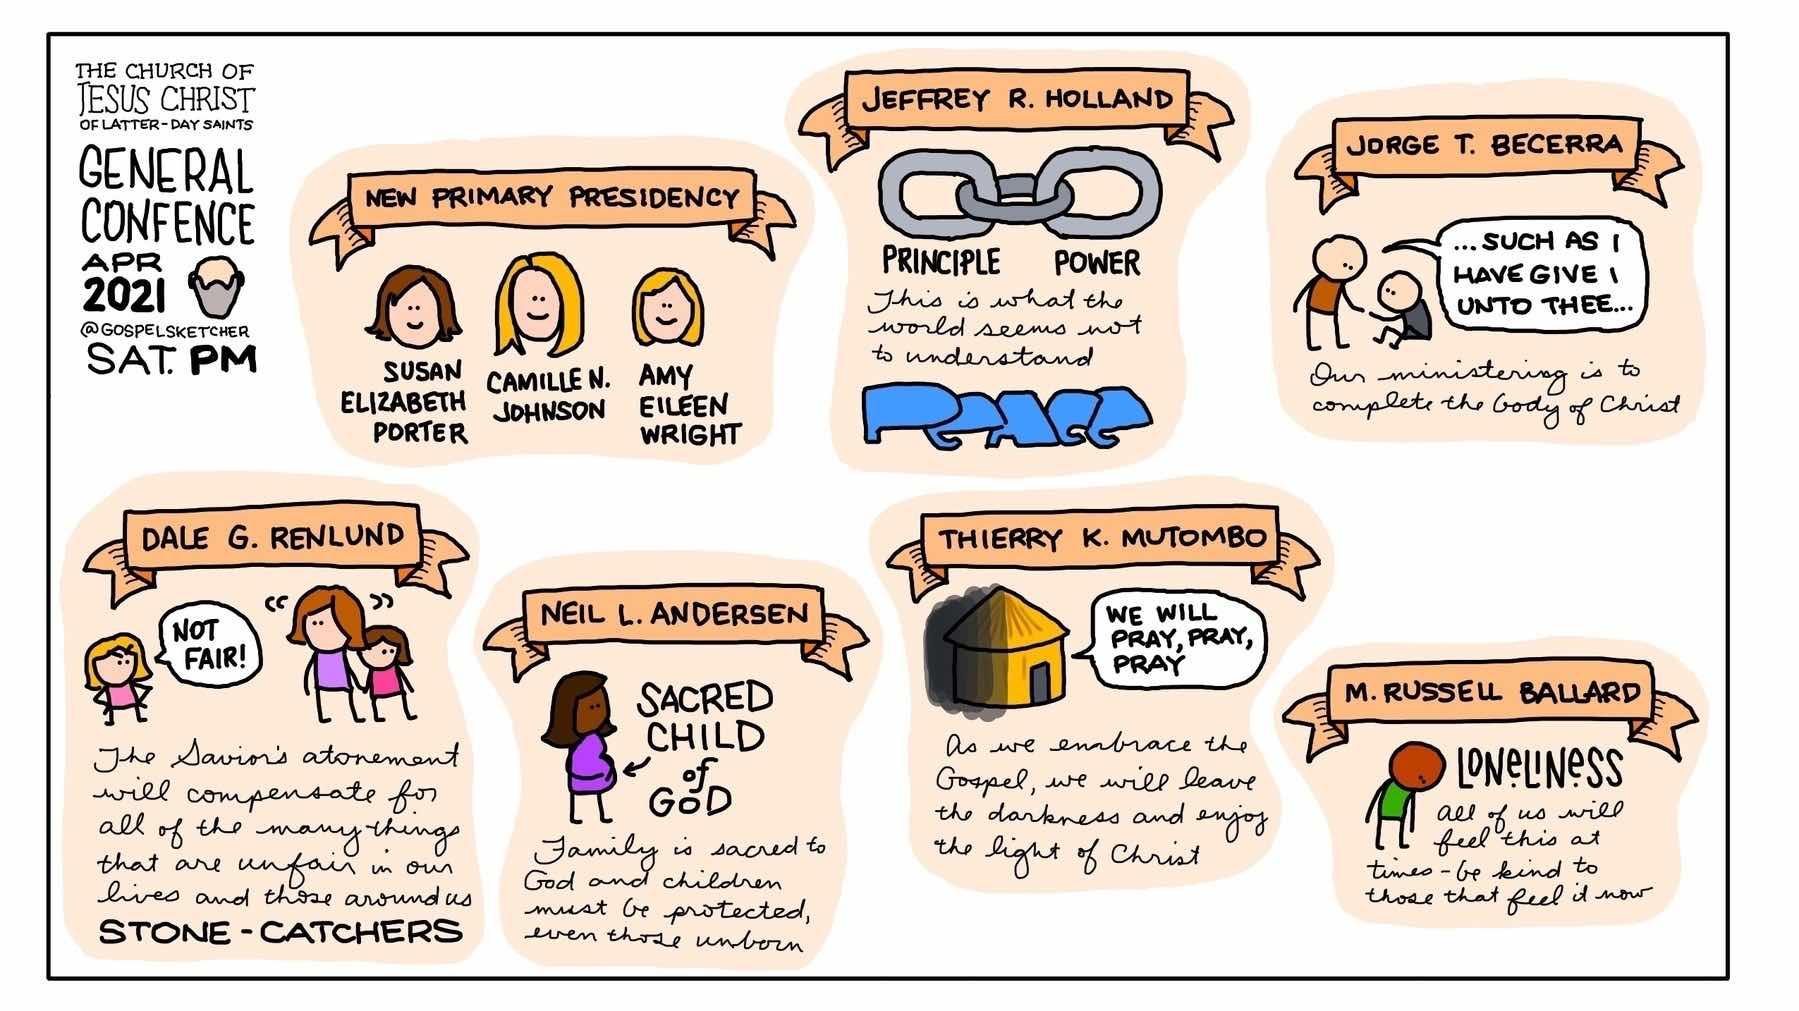 THE CHURCH OF
JESUS CHRIST
OF LATTER-DAY SAINTS
GENERAL
CONFENCE
APR
2021
@GOSPELSKETCHER
SAT. PM
NEW PRIMARY PRESIDENCY
SUSAN
ELIZABETH
PORTER
CAMILLE N.
JOHNSON
AMY
EILEEN
WRIGHT
JEFFREY R. HOLLAND
PRINCIPLE POWER
This is what the
world seems not
to understand
PEACE
JORGE T. BECERRA
...SUCH AS I
HAVE GIVE I
UNTO THEE...
Our ministering is to
complete the body of Christ
DALE G. RENLUND
NOT
FAIR!
The Savior's atonement
will compensate for
all of the many things
that are unfair in our
lives and those around us
STONE-CATCHERS
NEIL L. ANDERSEN
SACRED
CHILD
of
GOD
Family is sacred to
God and children
must be protected,
even those unborn
THIERRY K. MUTOMBO
WE WILL
PRAY, PRAY,
PRAY
As we embrace the
Gospel, we will leave
the darkness and enjoy
the light of Christ
M. RUSSELL BALLARD
LONELINESS
All of us will
feel this at
times - be kind to
those that feel it now